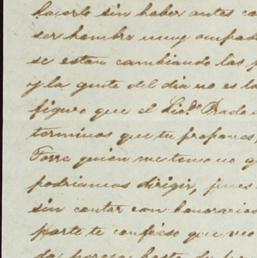 hacerlo sin haber antes co
ser hombre muy ocupad
se estan cambiando las p
y la gente del dia no es la
figuro que el Licdo. Rada
terminos que tu propones,
Torre quien me temo no q
podriamos dirigir, pues
sin contar con honorarios
parte te confieso que no